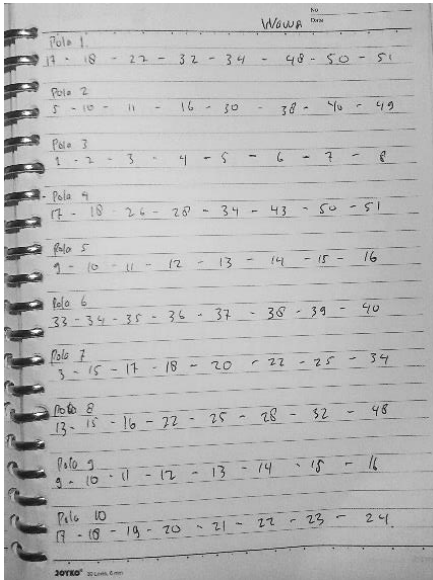 No
Date
Wawa
Pola 1
17 - 18 - 22 - 32 - 34 - 48 - 50 - 51
Pola 2
5 - 10 - 11 - 16 - 30 - 38 - 40 - 49
Pola 3
1 - 2 - 3 - 4 - 5 - 6 - 7 - 8
Pola 4
17 - 18 - 26 - 28 - 34 - 43 - 50 - 51
Pola 5
9 - 10 - 11 - 12 - 13 - 14 - 15 - 16
Pola 6
33 - 34 - 35 - 36 - 37 - 38 - 39 - 40
Pola 7
3 - 15 - 17 - 18 - 20 - 22 - 25 - 34
Pola 8
13 - 15 - 16 - 22 - 25 - 28 - 32 - 48
Pola 9
9 - 10 - 11 - 12 - 13 - 14 - 15 - 16
Pola 10
17 - 18 - 19 - 20 - 21 - 22 - 23 - 24
JOYKO